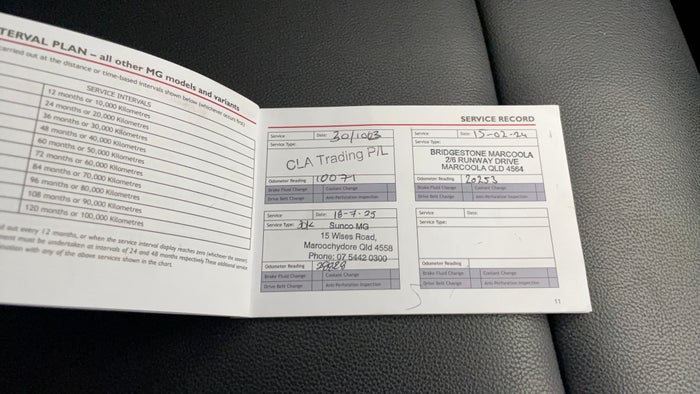 TERVAL PLAN – all other MG models and variants
carried out at the distance or time-based intervals shown below (whichever occurs first)
SERVICE INTERVALS
12 months or 10,000 Kilometres
24 months or 20,000 Kilometres
36 months or 30,000 Kilometres
48 months or 40,000 Kilometres
60 months or 50,000 Kilometres
72 months or 60,000 Kilometres
84 months or 70,000 Kilometres
96 months or 80,000 Kilometres
108 months or 90,000 Kilometres
120 months or 100,000 Kilometres
out every 12 months, or when the service interval display reaches zero (whichever the sooner).
ment must be undertaken at intervals of 24 and 48 months respectively. These additional service
nation with any of the above services shown in the chart.
SERVICE RECORD
Service Date:
Service Type:
CLA Trading P/L
Odometer Reading 10071
Brake Fluid Change Coolant Change
Drive Belt Change Anti-Perforation Inspection
Service Date: 15-02-24
Service Type:
BRIDGESTONE MARCOOLA
2/6 RUNWAY DRIVE
MARCOOLA QLD 4564
Odometer Reading 20253
Brake Fluid Change Coolant Change
Drive Belt Change Anti-Perforation Inspection
Service Date: 18-7-25
Service Type: 30k Sunco MG
15 Wises Road,
Maroochydore Qld 4558
Phone: 07 5442 0300
Odometer Reading
Brake Fluid Change Coolant Change
Drive Belt Change Anti-Perforation Inspection
Service Date:
Service Type:
Odometer Reading
Brake Fluid Change Coolant Change
Drive Belt Change Anti-Perforation Inspection
11